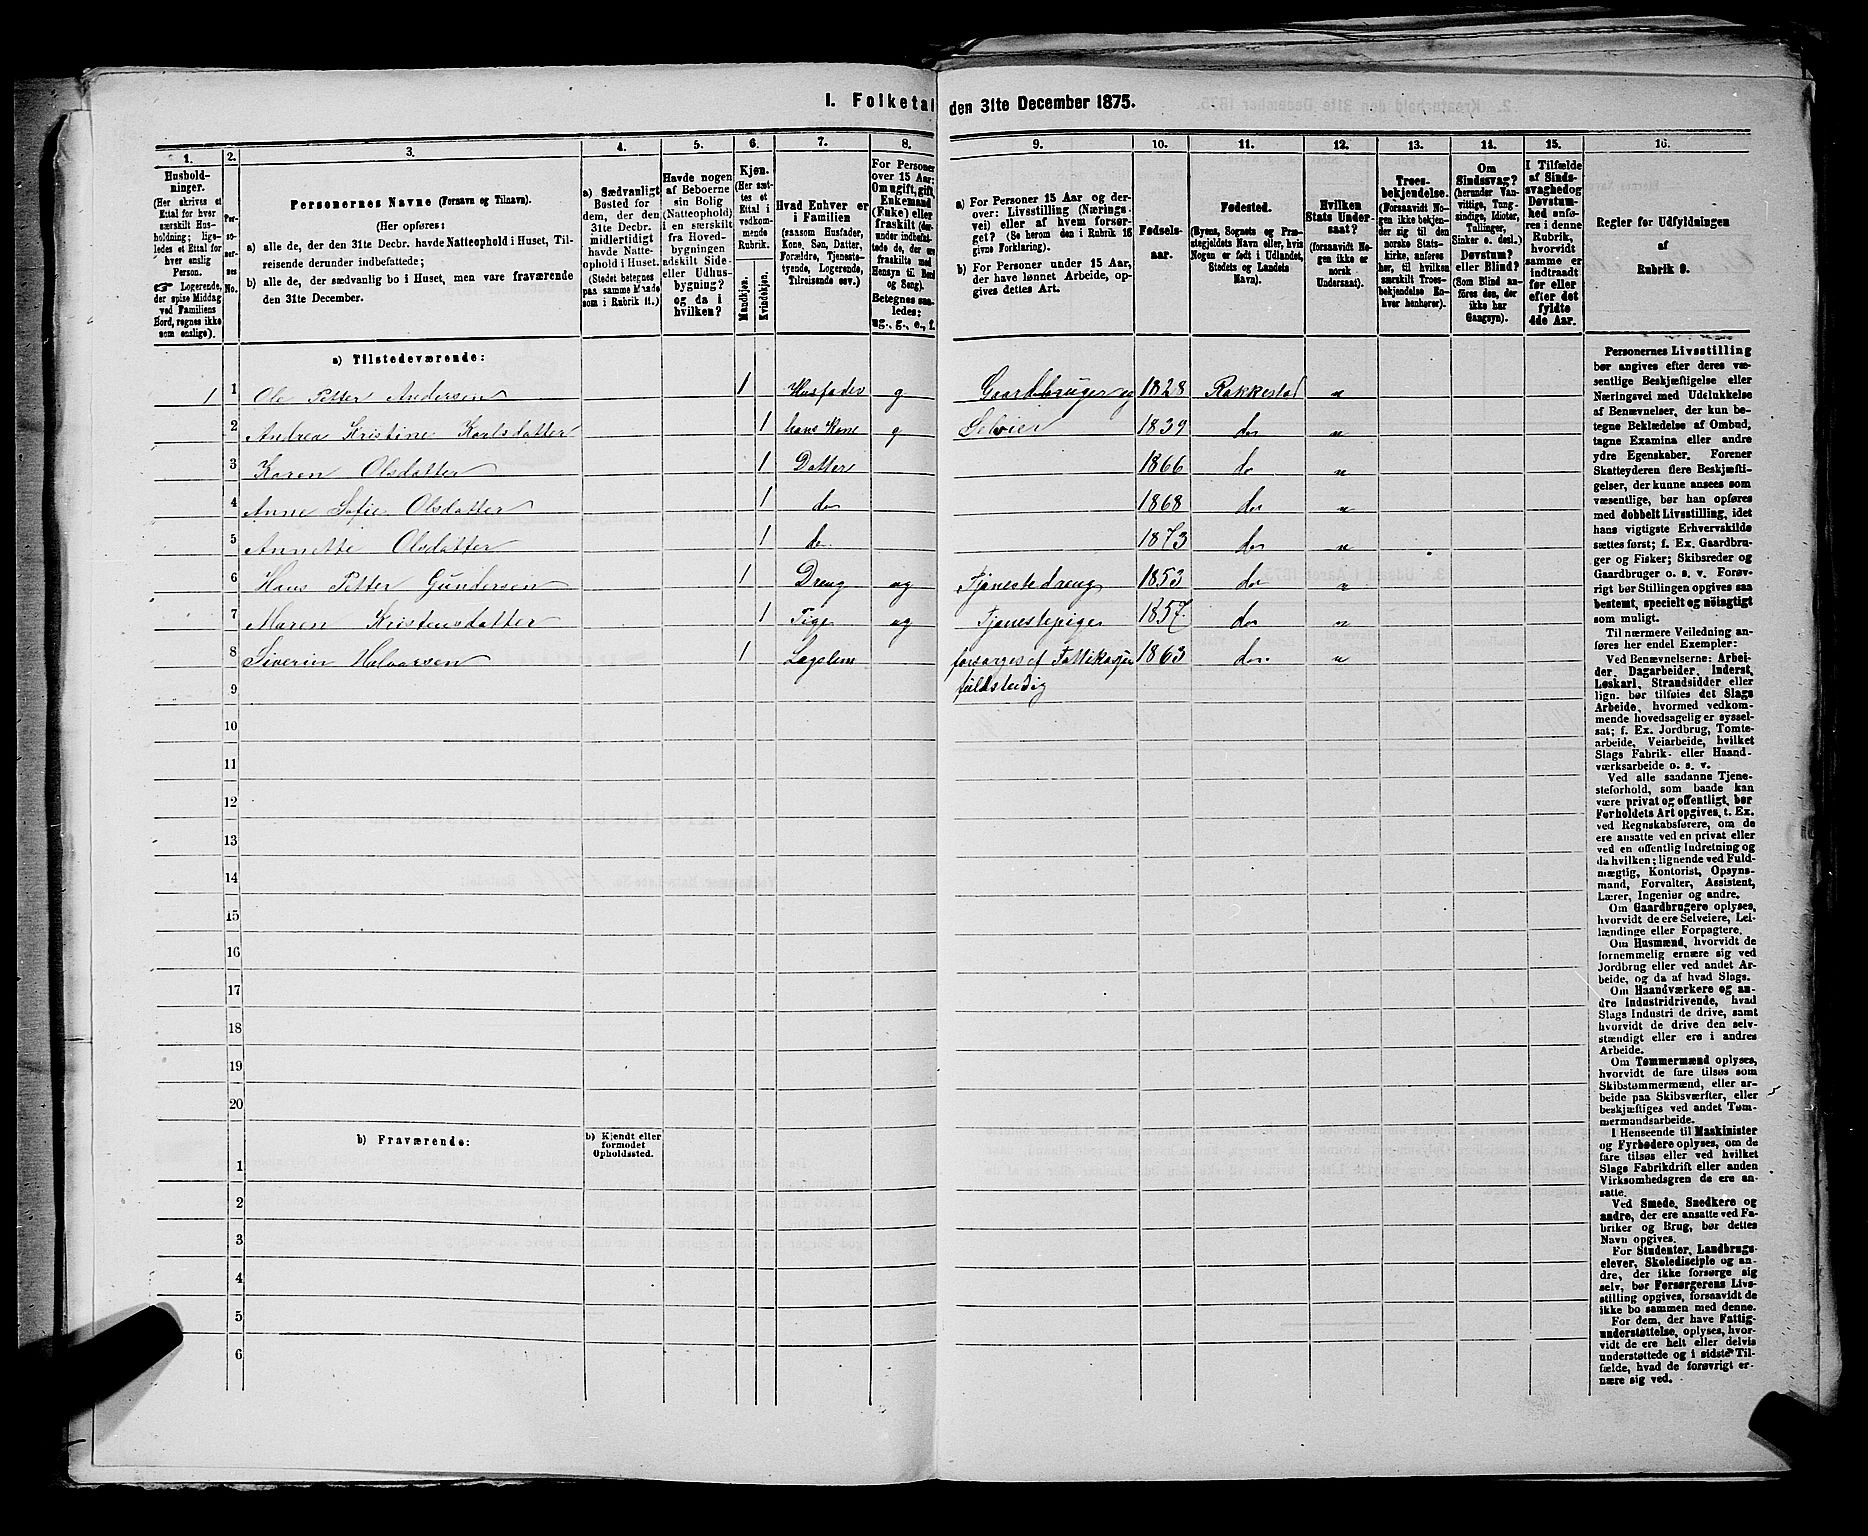 I. Folketal den 31te December 1875.
1. 2. 3. 4. 5. 6. 7. 8. 9. 10. 11. 12. 13. 14. 15. 16.
Hushold-
ninger.
(Her skrives et
Ettal for hver
særskilt Hus-
holdning; lige-
ledes et Ettal for
hver enslig
Person.
Logerende,
der spise Middag
ved Familiens
Bord, regnes ikke
som enslige).
Per-
so-
ner-
nes
No.
Personernes Navne (Fornavn og Tilnavn).
(Her opføres:
a) alle de, der den 31te Decbr. havde Natteophold i Huset, Til-
reisende derunder indbefattede;
b) alle de, der sædvanlig bo i Huset, men vare fraværende
den 31te December.
a) Sædvanligt
Bosted for
dem, der den
31te Decbr.
midlertidigt
havde Natte-
ophold i Huset.
(Stedet betegnes
paa samme Maade
som i Rubrik 11.)
Havde nogen
af Beboerne
sin Bolig
(Natteophold)
i en særskilt
fra Hoved-
bygningen
adskilt Side-
eller Udhus-
bygning?
og da i
hvilken?
Kjøn.
(Her sæt-
tes et
Ettal i
vedkom-
mende
Rubrik.
Mandkjøn.
Kvindekjøn.
Hvad Enhver er
i Familien
(saasom Husfader,
Kone, Søn, Datter,
Forældre, Tjeneste-
tyende, Logerende,
Tilreisende osv.)
For Personer
over 15 Aar:
Om ugift, gift,
Enkemand
(Enke) eller
fraskilt (der-
under indbefat-
tede de, der ere
fraskilte med
Hensyn til Bord
og Seng).
Betegnes saa-
ledes:
ug., g., e., f.
a) For Personer 15 Aar og der-
over: Livsstilling (Nærings-
vei) eller af hvem forsør-
get? (Se herom den i Rubrik 16
givne Forklaring).
b) For Personer under 15 Aar,
der have lønnet Arbeide, op-
gives dettes Art.
Fødsels-
aar.
Fødested.
(Byens, Sognets og Præ-
stegjeldets Navn eller, hvis
Nogen er født i Udlandet,
Stedets og Landets
Navn).
Hvilken
Stats Under-
saat?
(forsaavidt No-
gen ikke er
norsk
Undersaat).
Troes-
bekjendelse.
(Forsaavidt No-
gen ikke bekjen-
der sig til den
norske Stats-
kirke, anføres
her, til hvilken
særskilt Troes-
bekjendelse En-
hver henhører).
Om
Sindssvag?
(herunder Van-
vittige, Tung-
sindige, Idioter,
Tullinger,
Sinker o. desl.)
Døvstum?
eller Blind?
(Som Blind an-
føres den, der
ikke har
Gangsyn).
I Tilfælde
af Sinds-
svaghed og
Døvstum-
hed anfø-
res i denne
Rubrik,
hvorvidt
samme er
indtraadt
før eller
efter det
fyldte
4de Aar.
Regler for Udfyldningen
af
Rubrik 9.
a) Tilstedeværende:
1 1 Ole Petter Andersen 1 Husfader g Gaardbruger og 1828 Rakkestad n
2 Andrea Kristine Karlsdatter 1 hans Kone g Selveier 1839 do n
3 Karen Olsdatter 1 Datter 1866 do n
4 Anne Sofie Olsdatter 1 do 1868 do n
5 Annette Olsdatter 1 do 1873 do n
6 Hans Petter Gundersen 1 Dreng ug Tjenestedreng 1853 do n
7 Maren Kristensdatter 1 Pige ug Tjenestepige 1857. do n
8 Siverin Halvorsen 1 Lægslem forsørges af Fattikasjen 1863 do n
9 fuldstendig
10
11
12
13
14
15
16
17
18
19
20
b) Fraværende:
b) Kjendt eller
formodet
Opholdssted.
1
2
3
4
5
6
Personernes Livsstilling
bør angives efter deres væ-
sentlige Beskjæftigelse eller
Næringsvei med Udelukkelse
af Benævnelser, der kun be-
tegne Beklædelse af Ombud,
tagne Examina eller andre
ydre Egenskaber. Forener
Skatteyderen flere Beskjæfti-
gelser, der kunne ansees som
væsentlige, bør han opføres
med dobbelt Livsstilling, idet
hans vigtigste Erhvervskilde
sættes først; f. Ex. Gaardbru-
ger og Fisker; Skibsreder og
Gaardbruger o. s. v. Forøv-
rigt bør Stillingen opgives saa
bestemt, specielt og nøiagtigt
som muligt.
Til nærmere Veiledning an-
føres her endel Exempler:
Ved Benævnelserne: Arbei-
der, Dagarbeider, Inderst,
Løskarl, Strandsidder eller
lign. bør tilføies det Slags
Arbeide, hvormed vedkom-
mende hovedsagelig er syssel-
sat; f. Ex. Jordbrug, Tomte-
arbeide, Veiarbeide, hvilket
Slags Fabrik- eller Haand-
værksarbeide o. s. v.
Ved alle saadanne Tjene-
steforhold, som baade kan
være privat og offentligt, bør
Forholdets Art opgives, t. Ex.
ved Regnskabsførere, om de
ere ansatte ved en privat eller
ved en offentlig Indretning og
da hvilken; lignende ved Fuld-
mægtig, Kontorist, Opsyns-
mand, Forvalter, Assistent,
Lærer, Ingeniør og andre.
Om Gaardbrugere oplyses,
hvorvidt de ere Selveiere, Lei-
lændinge eller Forpagtere.
Om Husmænd, hvorvidt de
fornemmelig ernære sig ved
Jordbrug eller ved andet Ar-
beide, og da af hvad Slags.
Om Haandværkere og an-
dre Industridrivende, hvad
Slags Industri de drive, samt
hvorvidt de drive den selv-
stændigt eller ere i andres
Arbeide.
Om Tømmermænd oplyses,
hvorvidt de fare tilsøs som
Skibstømmermænd, eller ar-
beide paa Skibsværfter, eller
beskjæftiges ved andet Tøm-
mermandsarbeide.
I Henseende til Maskinister
og Fyrbødere oplyses, om de
fare tilsøs eller ved hvilket
Slags Fabrikdrift eller anden
Virksomhedsgren de ere an-
satte.
Ved Smede, Snedkere og
andre, der ere ansatte ved Fa-
briker og Brug, bør dettes
Navn opgives.
For Studenter, Landbrugs-
elever, Skoledisciple og an-
dre, der ikke forsørge sig
selv, bør Forsørgerens Livs-
stilling opgives, forsaavidt de
ikke bo sammen med denne.
For dem, der have Fattig-
understøttelse, oplyses, hvor-
vidt de ere helt eller delvis
understøttede og i sidste Til-
fælde, hvad de forøvrigt er-
nære sig ved.